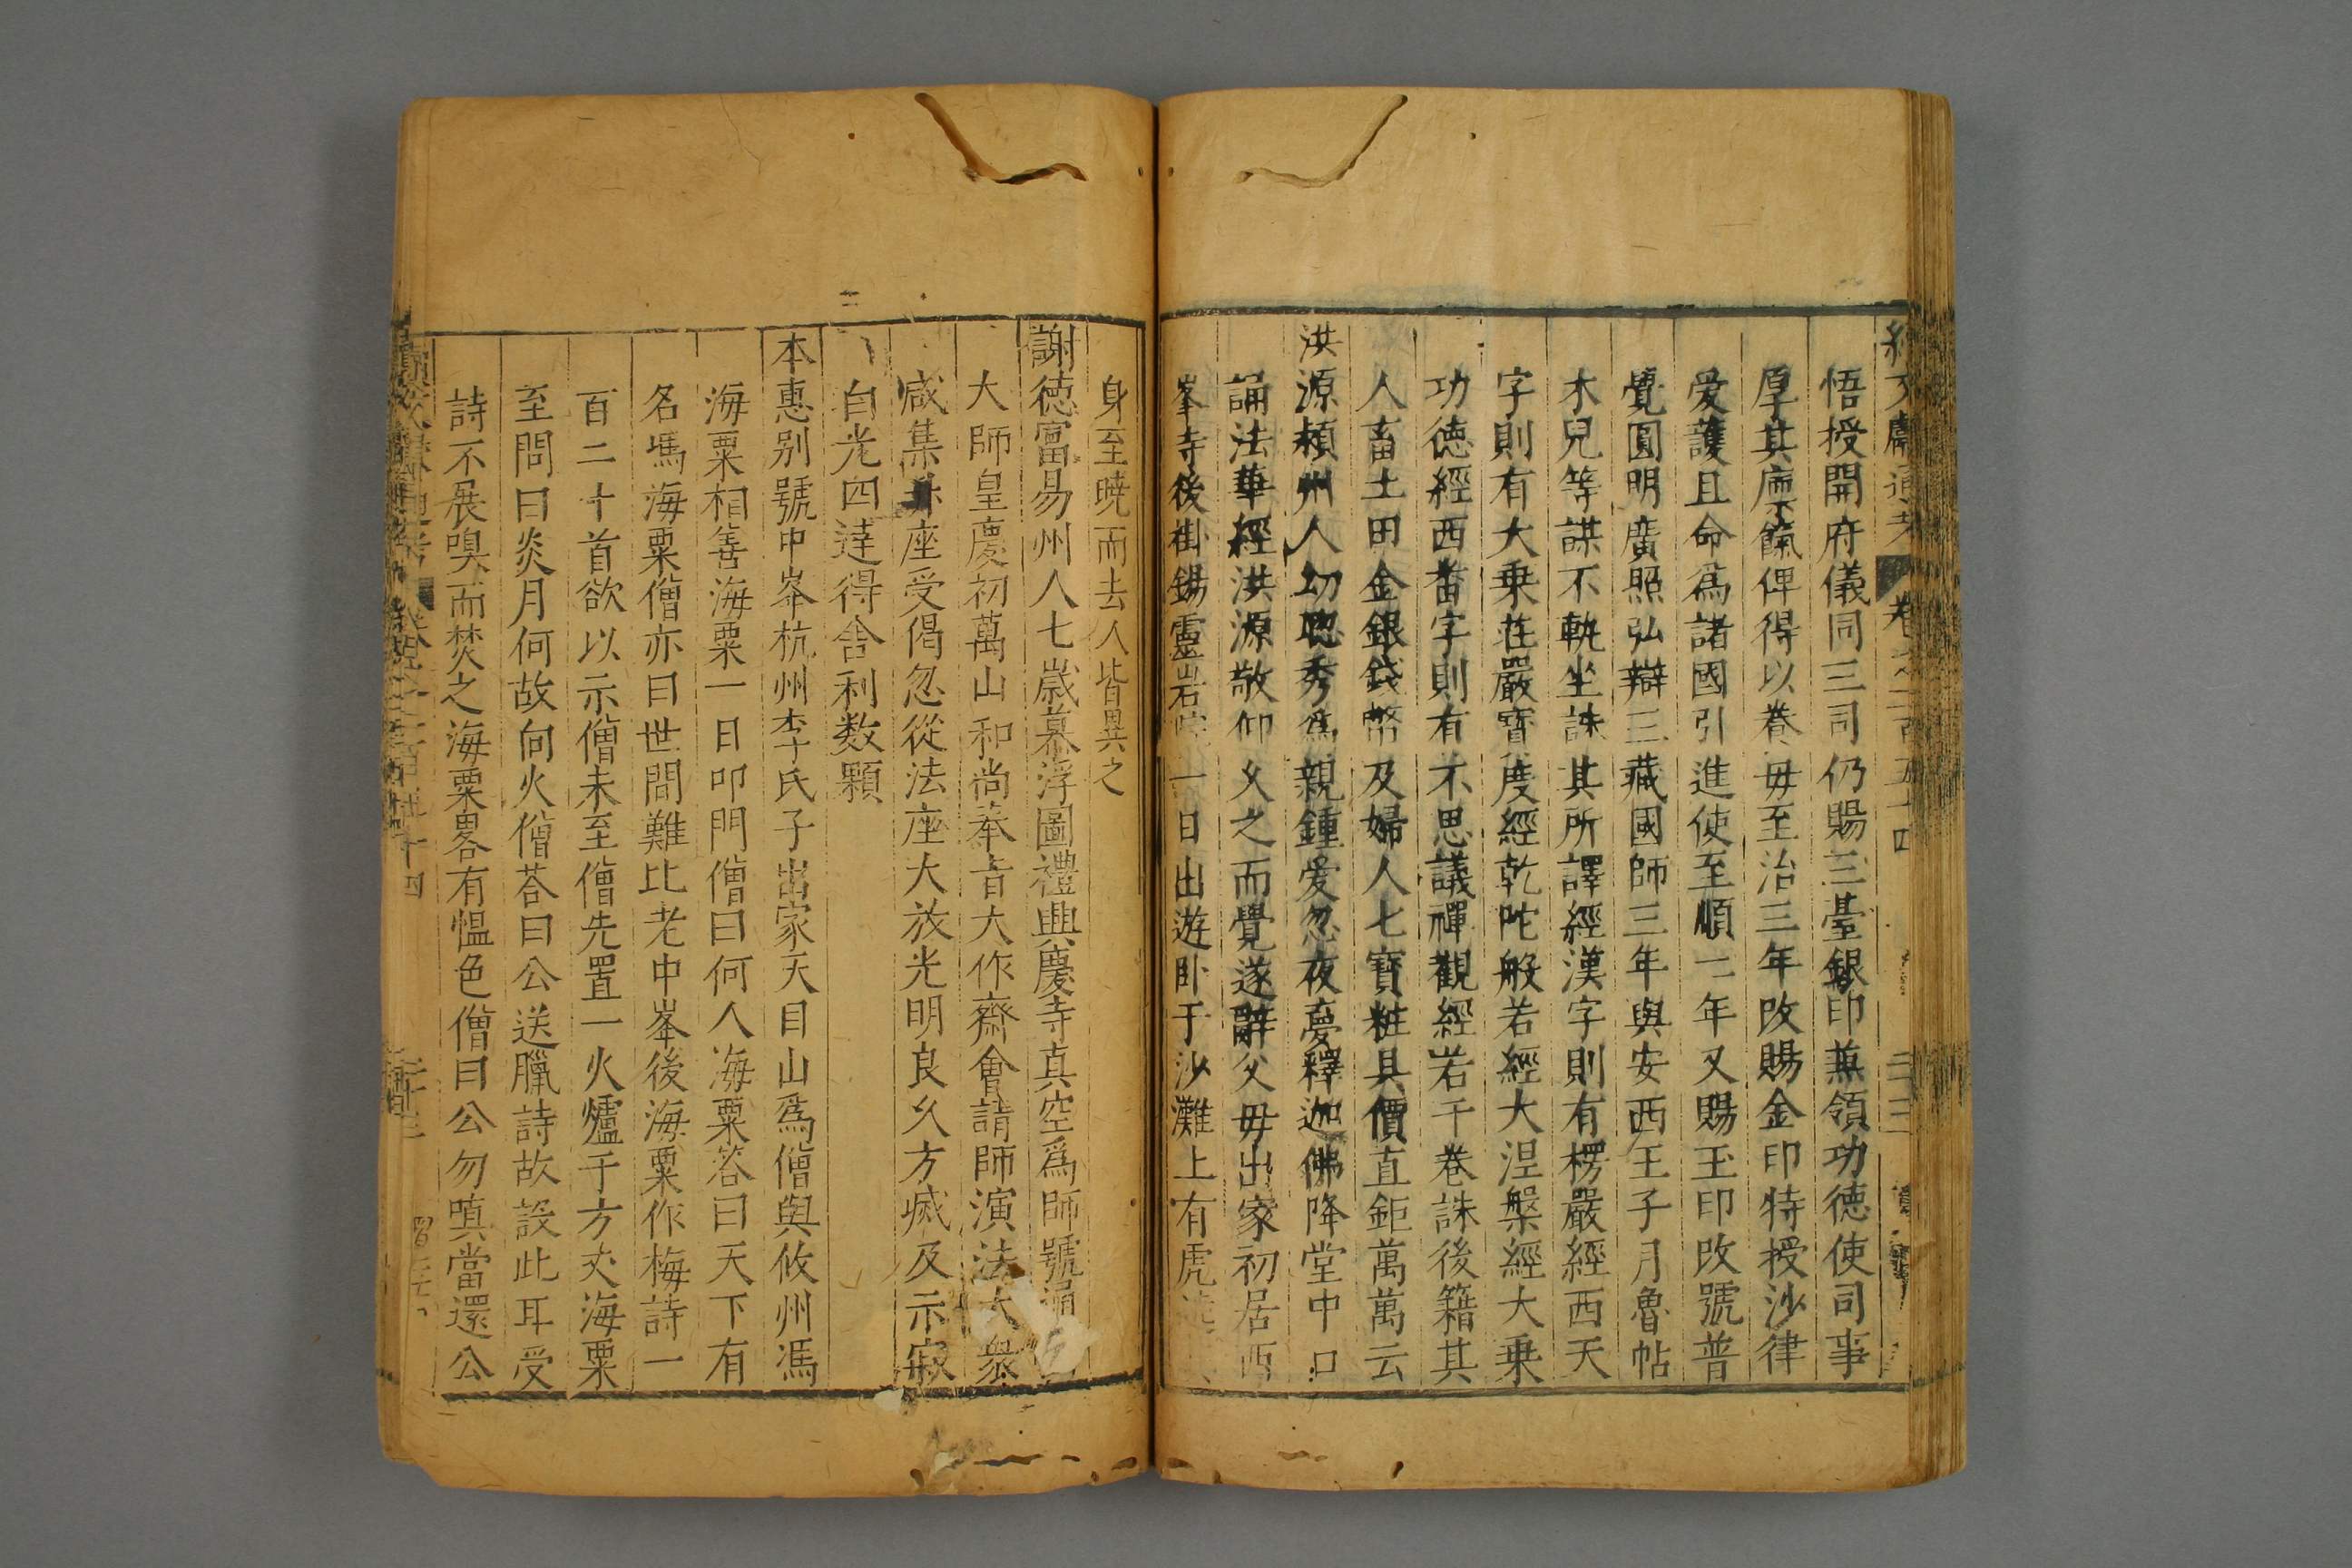 悟授開府儀同三司仍賜三臺銀印兼領功德使司事
厚其廩餼俾得以養毋至治三年改賜金印特授沙律
愛護且命爲諸國引進使至順二年又賜玉印改號普
覺圓明廣照弘辯三藏國師三年與安西王子月魯帖
木兒等謀不軌坐誅其所譯經漢字則有楞嚴經西天
字則有大乗荘嚴寳度經乾陀般若經大涅槃經大乗
功德經西畨字則有不思議禪觀經若干卷誅後籍其
人畜土田金銀錢幣及婦人七寳粧具價直鉅萬萬云
洪源潁州人幼聰秀爲親鍾爱忽夜夣釋迦佛降堂中口
誦法華經洪源敬仰乆之而覺遂辭父毋出家初居西
峯寺後掛錫靈岩 一日出遊卧于沙灘上有虎
身至曉而去人皆異之
謝德富易州人七歳慕浮圖禮興慶寺真空爲師號通
大師皇慶初萬山和尚奉旨大作齋會請師演法大衆
咸集 座受偈忽從法座大放光明良乆方㓕及示寂
白光四逹得舍利数顆
本惠别號中峯杭州李氏子出家天目山爲僧與攸州馮
海粟相善海粟一日叩門僧曰何人海粟答曰天下有
名馮海粟僧亦曰世間難比老中峯後海粟作梅詩一
百二十首欲以示僧未至僧先置一火爐于方丈海粟
至問曰炎月何故向火僧荅曰公送臘詩故設此耳受
詩不展嗅而焚之海粟畧有愠色僧曰公勿嗔當還公